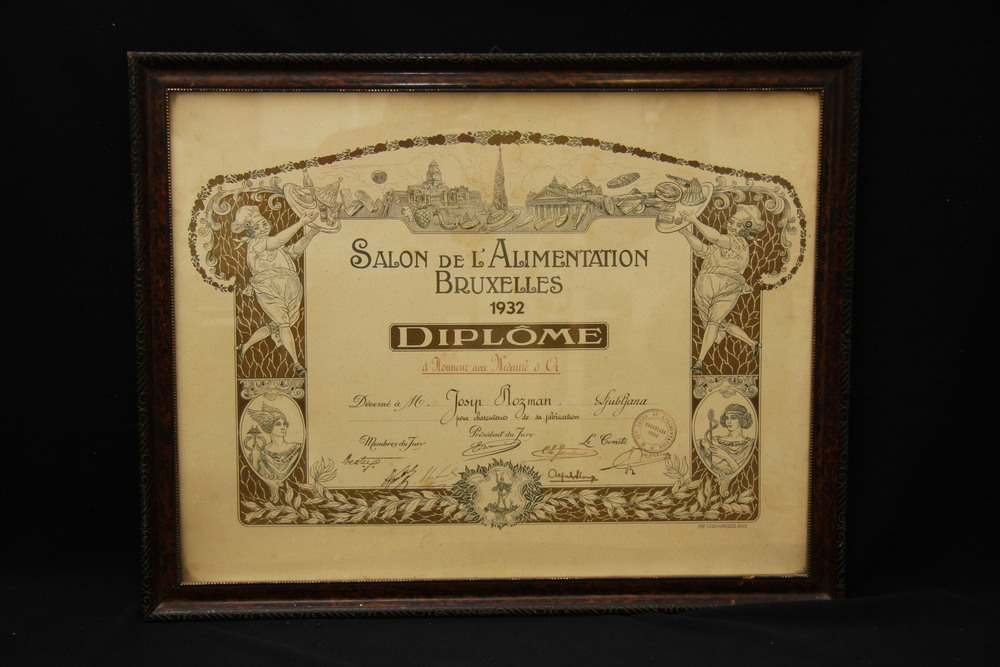 SALON DE L'ALIMENTATION
BRUXELLES
1932
DIPLÔME
d'Honneur avec Médaille d'Or
Décerné à M. Josip Rozman, Ljubljana
pour charcuteries de sa fabrication
Membres du Jury
Président du Jury
Le Comité